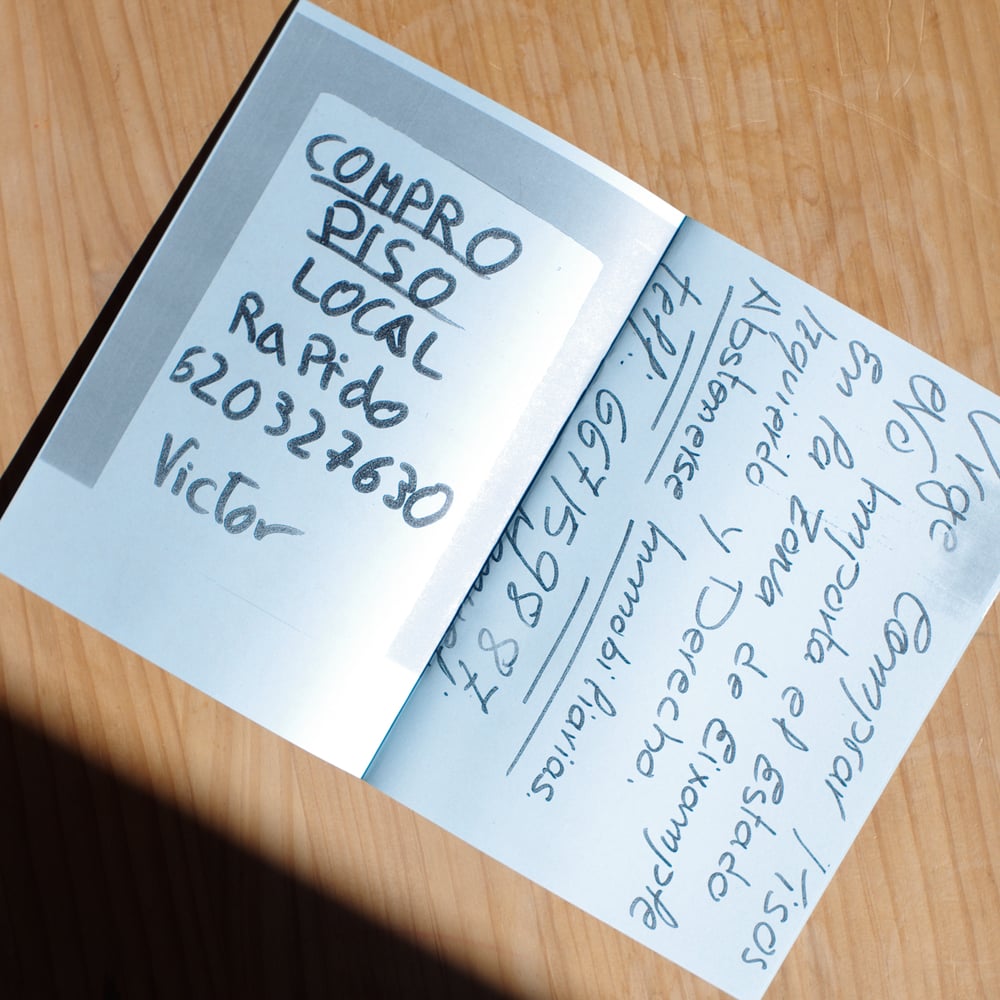 COMPRO
PISO
LOCAL
RaPido
620327630
Victor
Urge Comprar Pisos
No Importa el Estado
En la Zona de Eixample
Izquierdo y Derecha.
Abstenerse Immobiliarias.
telf.: 667159887